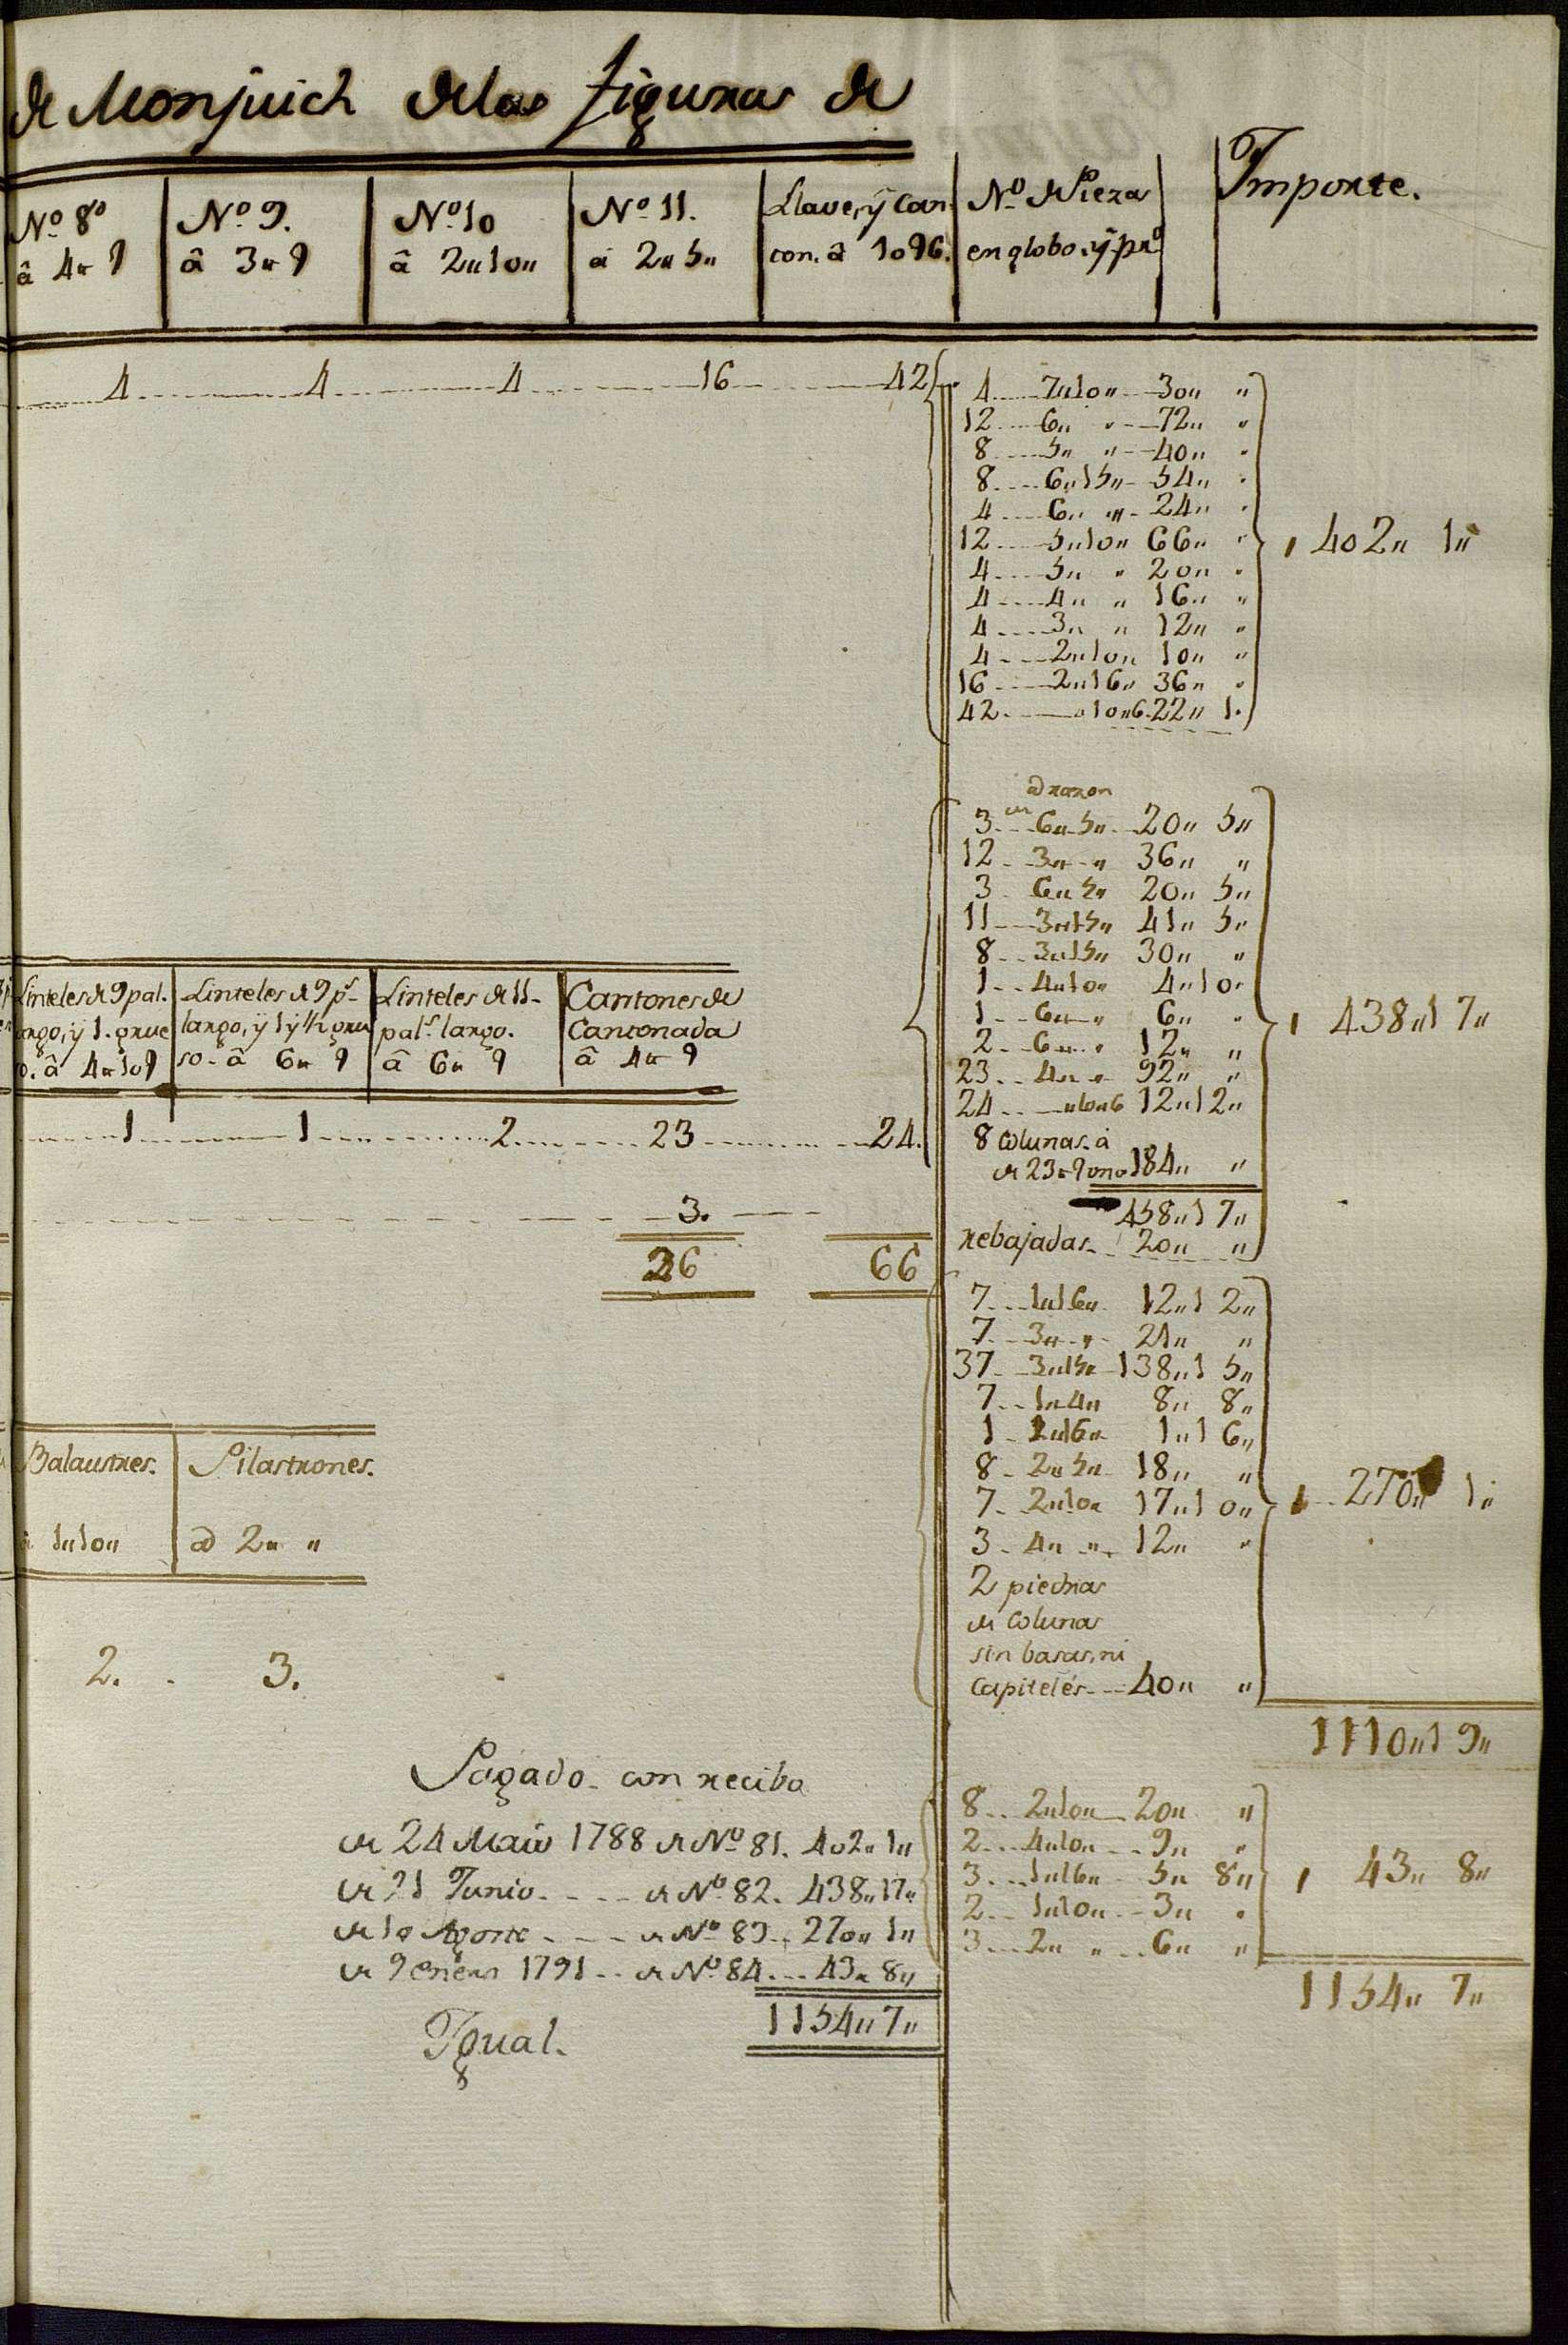 de Monjuich delas figuras de
Nº 8º
â 4„ 9
Nº 9.
â 3„ 9
Nº 10
â 2„10„
Nº 11.
â 2„5„
Llave, ÿ Can-
con. â 1096.
Nº de Pieza
en globo, ÿ prº
Importe.
4 4 4 16 42
4 7„10„ 30„ „
12 6„ „ 72„ „
8 5„ „ 40„ „
8 6„15„ 54„ „
4 6„ „ 24„ „
12 5„10„ 66„ „
4 5„ „ 20„ „
4 4„ „ 16„ „
4 3„ „ 12„ „
4 2„10„ 10„ „
16 2„16„ 36„ „
42 „10„6 22„ 1„
402„ 1„
a razon
de
3 6„5„ 20„ 5„
12 3„ „ 36„ „
3 6„5„ 20„ 5„
11 3„15„ 41„ 5„
8 3„15„ 30„ „
1 4„10„ 4„10„
1 6„ „ 6„ „
2 6„ „ 12„ „
23 4„ „ 92„ „
24 „10„6 12„12„
8 Colunas. á
de 23„9 una 184„ „
458„17„
rebajadas 20„ „
438„17„
Linteles de 9 pal.
largo, ÿ 1. grue
so. â 4„109
Linteles de 9 pˢ
largo, ÿ 1 ÿ ½ grue
so. â 6„ 9
Linteles de 11
palˢ largo.
â 6„ 9
Cantones de
Cantonada
â 4„ 9
1 1 2 23 24.
3.
26 66
7 1„16„ 12„12„
7 3„ „ 21„ „
37 3„15„ 138„15„
7 1„4„ 8„ 8„
1 1„16„ 1„16„
8 2„5„ 18„ „
7 2„10„ 17„10„
3 4„ „ 12„ „
2 piedras
de Colunas
sin basas, ni
capiteles 40„ „
270„ 1„
Balaustres.
â 1„10„
Pilastrones.
a 2„ „
2. 3.
1110„19„
Pagado con recibo
de 24 Maio 1788 de Nº 81. 402„ 1„
de 21 Junio de Nº 82. 438„17„
de 10 Agosto de Nº 83. 270„ 1„
de 9 Enero 1791 de Nº 84 43„ 8„
1154„7„
Igual.
8 2„10„ 20„ „
2 4„10„ 9„ „
3 1„16„ 5„ 8„
2 1„10„ 3„ „
3 2„ „ 6„ „
43„ 8„
1154„ 7„